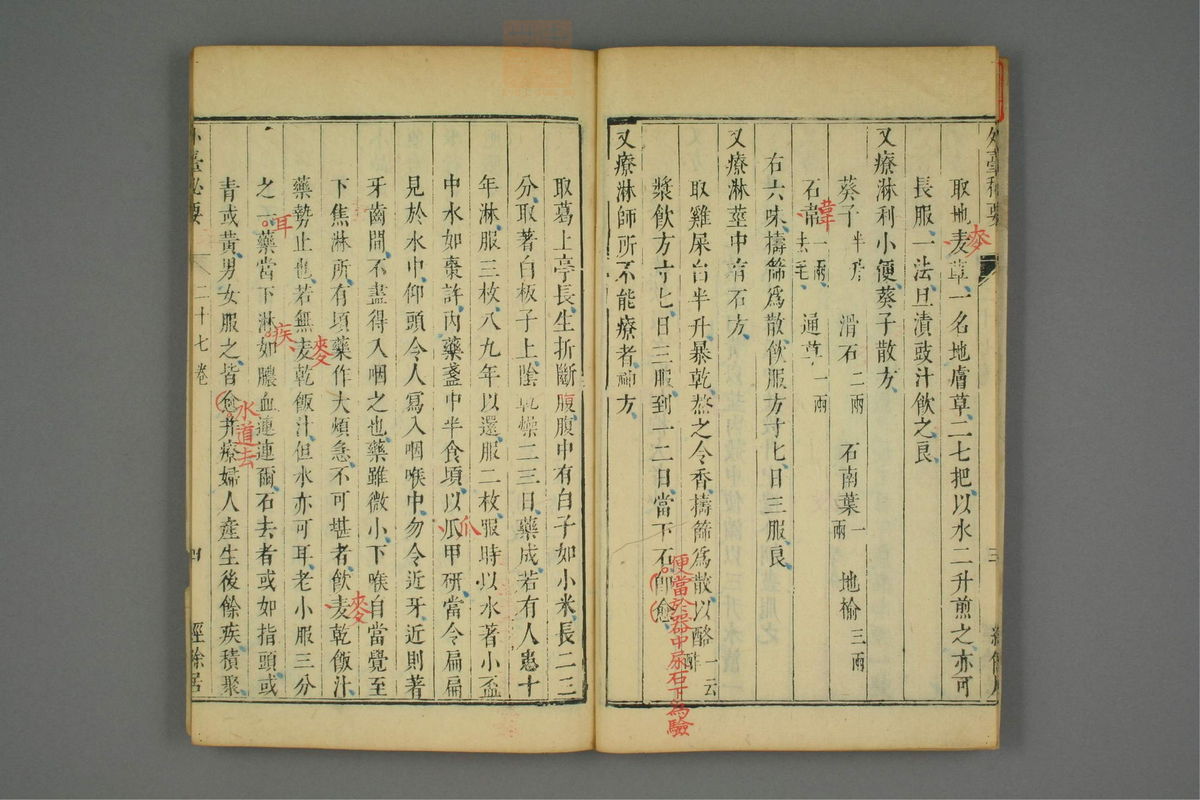 外臺秘要
三
經餘居
取地麦草一名地膚草二七把以水二升煎之亦可
麥
長服一法旦漬豉汁飲之良
又療淋利小便葵子散方
葵子半升 滑石二兩 石南葉一兩 地榆三兩
石韋一兩去毛 通草一兩
韋
右六味擣篩爲散飲服方寸匕日三服良
又療淋莖中有石方
取雞屎白半升暴乾熬之令香擣篩爲散以酪一云酢
漿飲方寸匕日三服到一二日當下石即愈
便當於器中尿石下為驗
又療淋師所不能療者神方
取葛上亭長生折斷腹腹中有白子如小米長二三
分取著白板子上陰乾燥二三日藥成若有人患十
年淋服三枚八九年以還服二枚服時以水著小盃
中水如棗許內藥盞中半食頃以瓜甲研當令扁扁
爪
見於水中仰頭令人寫入咽喉中勿令近牙近則著
牙齒間不盡得入咽之也藥雖微小下喉自當覺至
下焦淋所有頃藥作大煩急不可堪者飲麦乾飯汁
麥
藥勢止也若無麦乾飯汁但水亦可耳老小服三分
麥
之一藥當下淋如膿血連連爾石去者或如指頭或
耳
疾
青或黃男女服之皆愈并療婦人產生後餘疾積聚
水道去
外臺秘要
二十七卷
四
經餘居